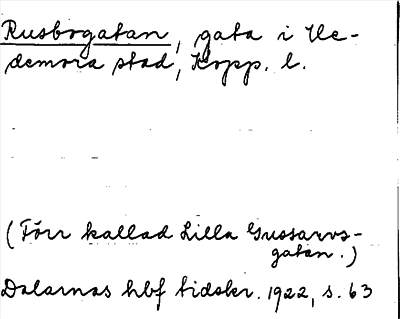 Rusbogatan, gata i He-
demora stad, Kopp. l.
(Förr kallad Lilla Gussarvs-
gatan.)
Dalarnas hbf tidskr. 1922, s. 63